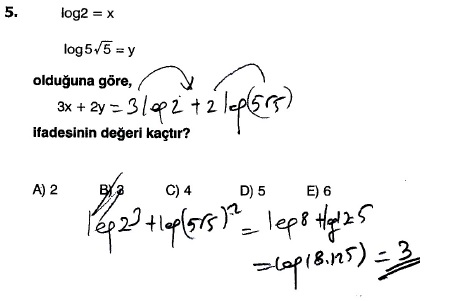 5. log2 = x
log5√5 = y
olduğuna göre,
3x + 2y = 3log2 + 2log(5√5)
ifadesinin değeri kaçtır?
A) 2 B) 3 C) 4 D) 5 E) 6
log2³ + log(5√5)² = log8 + lg125
= log(8.125) = 3